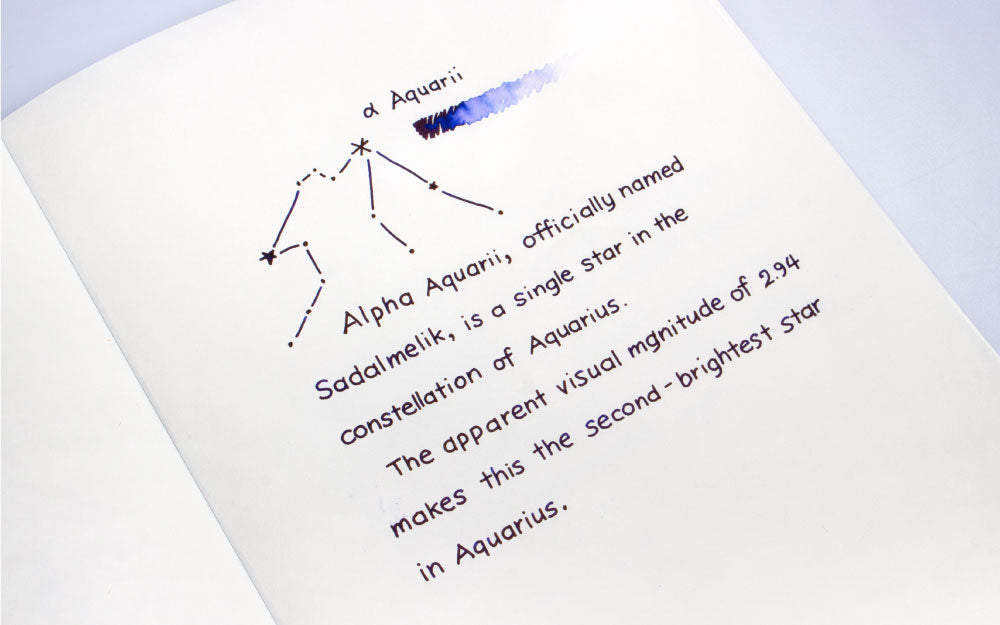 α Aquarii
Alpha Aquarii, officially named
Sadalmelik, is a single star in the
constellation of Aquarius.
The apparent visual mgnitude of 2.94
makes this the second-brightest star
in Aquarius.